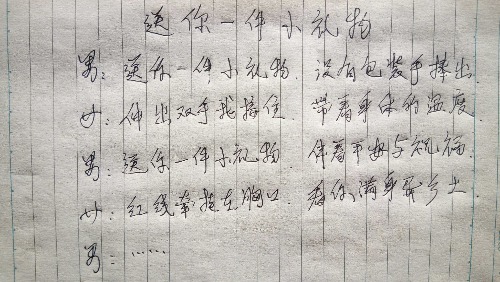 送你一件小礼物
男：送你一件小礼物．没有包装手捧出．
女：伸出双手我接住．带着身体的温度．
男：送你一件小礼物．伴着平安与祝福．
女：红线牵挂在胸口．看你满身是乡土．
男：……